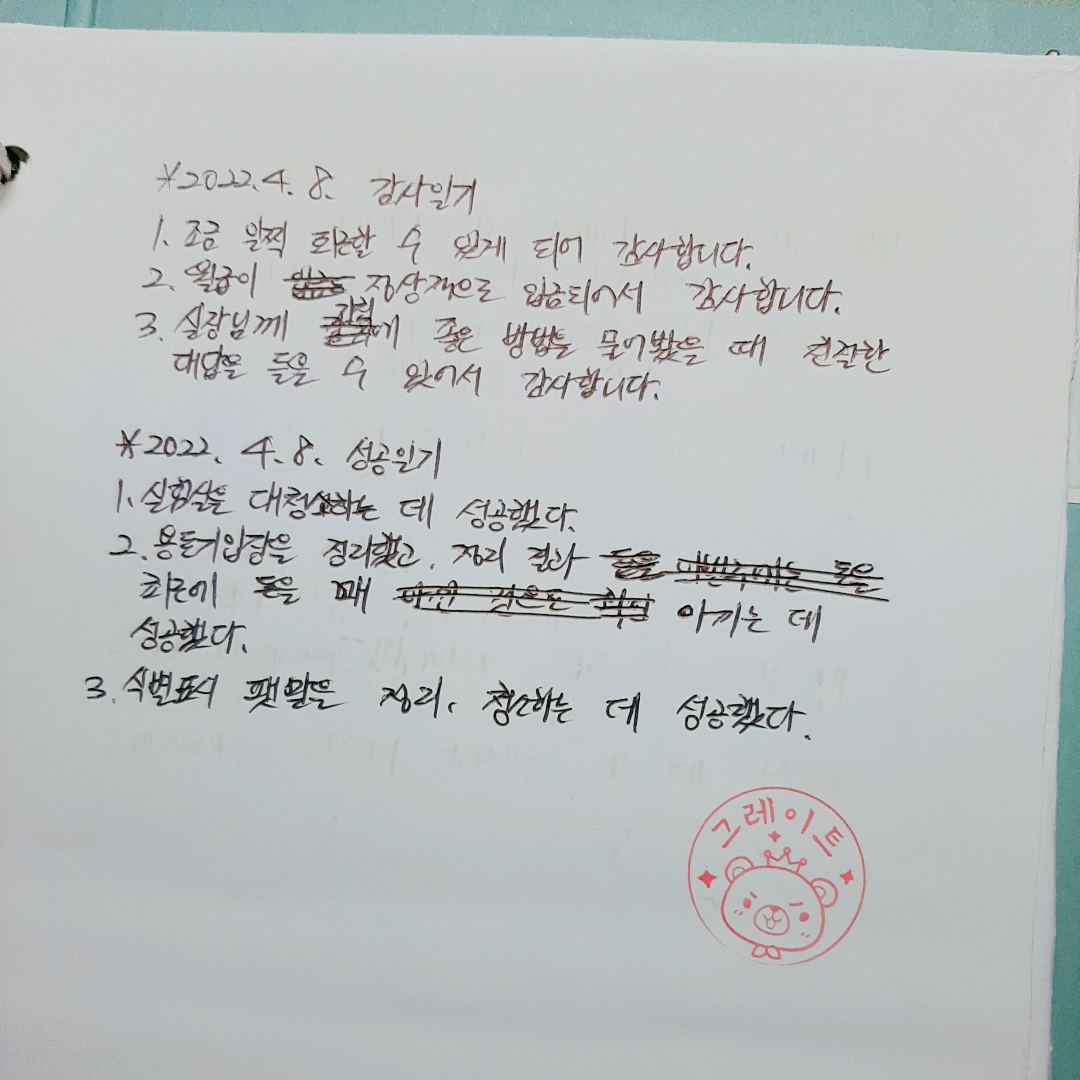 *2022.4.8. 감사일기
1. 조금 일찍 퇴근할 수 있게 되어 감사합니다.
2. 월급이 정상적으로 입금되어서 감사합니다.
3. 실장님께 좋은 방법을 물어봤을 때 친절한
대답을 들을 수 있어서 감사합니다.
*2022. 4. 8. 성공일기
1. 실험실을 대청소하는 데 성공했다.
2. 용돈기입장을 정리했고, 정리 결과
최근에 돈을 꽤 아끼는 데
성공했다.
3. 식별표시 팻말을 정리, 청소하는 데 성공했다.
그레이트